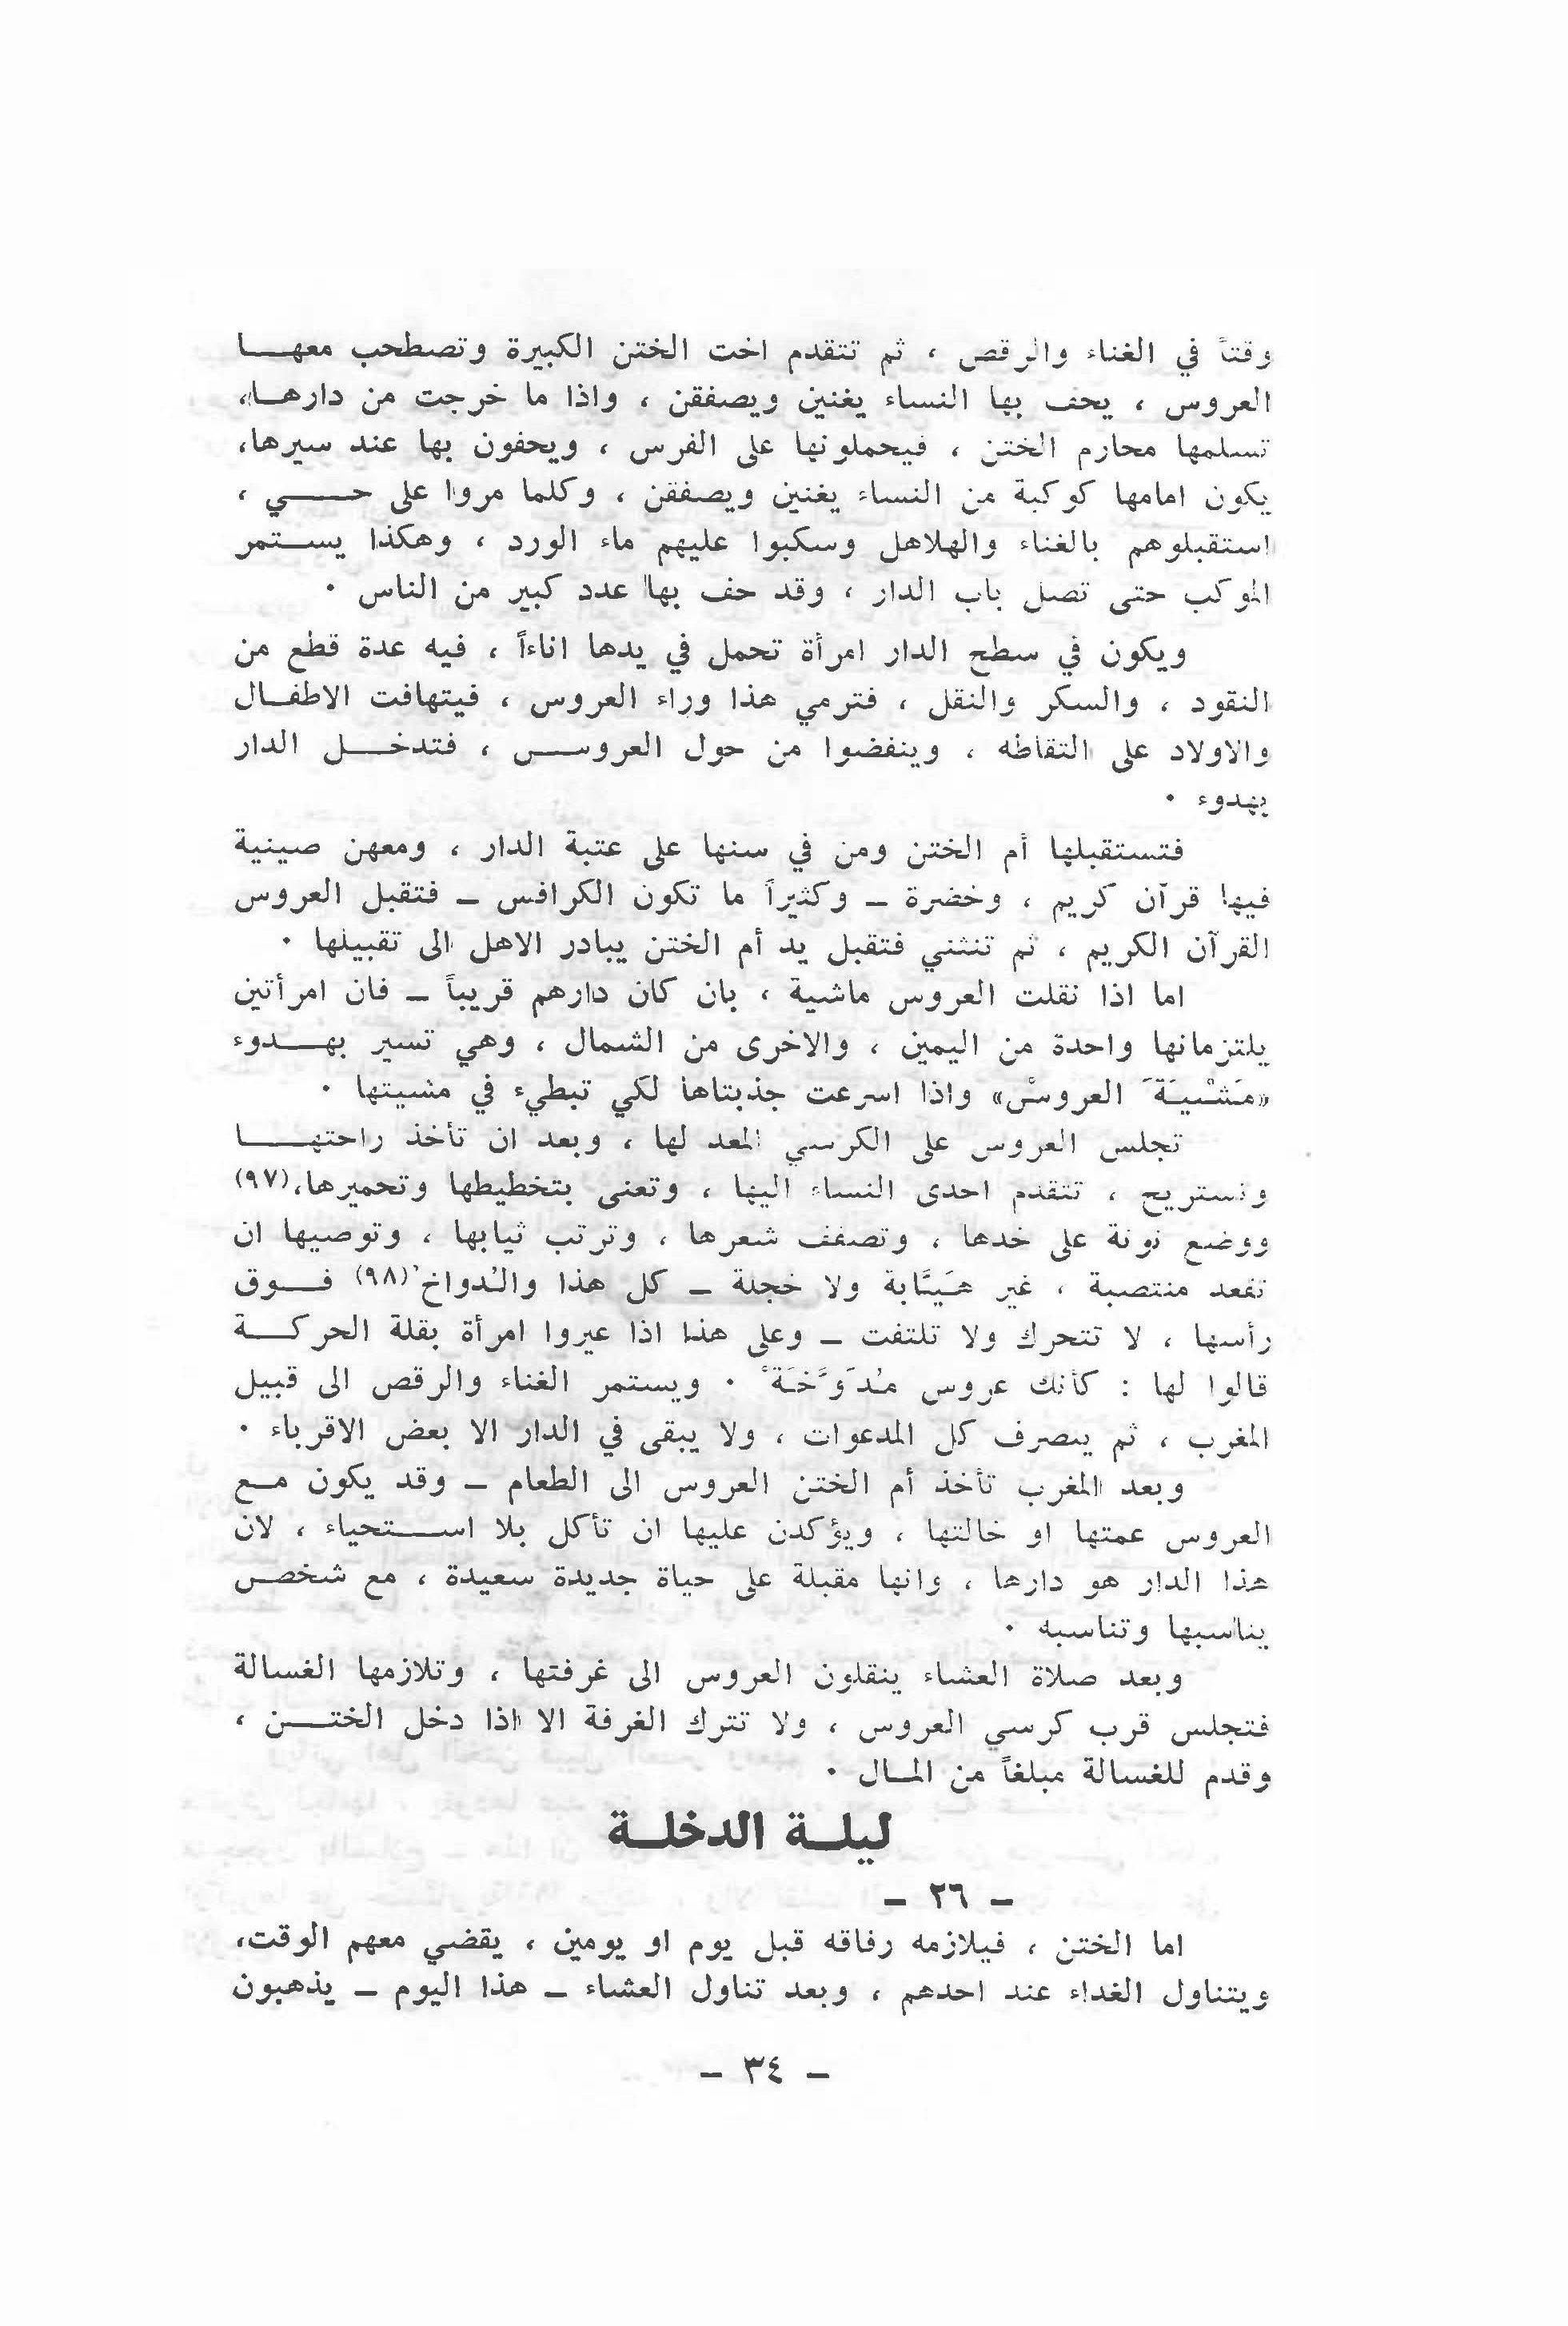 وقتاً في الغناء والرقص ، ثم تتقدم اخت الختن الكبيرة وتصطحب معهـــا
العروس ، يحف بها النساء يغنين ويصفقن ، واذا ما خرجت من دارهـا،
تسلمها محارم الختن ، فيحملونها على الفرس ، ويحفون بها عند سيرها،
يكون امامها كوكبة من النساء يغنين ويصفقن ، وكلما مروا على حـــــي ،
استقبلوهم بالغناء والهلاهل وسكبوا عليهم ماء الورد ، وهكذا يســتمر
الموكب حتى تصل باب الدار ، وقد حف بها عدد كبير من الناس ٠
ويكون في سطح الدار امرأة تحمل في يدها اناءاً ، فيه عدة قطع من
النقود ، والسكر والنقل ، فترمي هذا وراء العروس ، فيتهافت الاطفـال
والاولاد على التقاطه ، وينفضوا من حول العروســـس ، فتدخـــل الدار
بهدوء ٠
فتستقبلها أم الختن ومن في سنها على عتبة الدار ، ومعهن صينية
فيها قرآن كريم ، وخضرة ـ وكثيراً ما تكون الكرافس ـ فتقبل العروس
القرآن الكريم ، ثم تنثني فتقبل يد أم الختن يبادر الاهل الى تقبيلها ٠
اما اذا نقلت العروس ماشية ، بان كان دارهم قريباً ـ فان امرأتين
يلتزمانها واحدة من اليمين ، والاخرى من الشمال ، وهي تسير بهـــدوء
«مَشْيَةَ العروسْ» واذا اسرعت جذبتاها لكي تبطيء في مشيتها ٠
تجلس العروس على الكرسي المعد لها ، وبعد ان تأخذ راحتهـــا
وتستريح ، تتقدم احدى النساء اليها ، وتعنى بتخطيطها وتحميرها،(٩٧)
ووضع نونة على خدها ، وتصفف شعرها ، وترتب ثيابها ، وتوصيها ان
تقعد منتصبة ، غير هَيَّابة ولا خجلة ـ كل هذا والدُواخ(٩٨) فـــوق
رأسها ، لا تتحرك ولا تلتفت ـ وعلى هذا اذا عيروا امرأة بقلة الحركـــة
قالوا لها : كأنك عروس مُدَوَّخَةْ ٠ ويستمر الغناء والرقص الى قبيل
المغرب ، ثم ينصرف كل المدعوات ، ولا يبقى في الدار الا بعض الاقرباء ٠
وبعد المغرب تأخذ أم الختن العروس الى الطعام ـ وقد يكون مـع
العروس عمتها او خالتها ، ويؤكدن عليها ان تأكل بلا اســـتحياء ، لان
هذا الدار هو دارها ، وانها مقبلة على حياة جديدة سعيدة ، مع شخصس
يناسبها وتناسبه ٠
وبعد صلاة العشاء ينقلون العروس الى غرفتها ، وتلازمها الغسالة
فتجلس قرب كرسي العروس ، ولا تترك الغرفة الا اذا دخل الختـــن ،
وقدم للغسالة مبلغاً من المـال ٠
ليلـة الدخلـة
ـ ٢٦ ـ
اما الختن ، فيلازمه رفاقه قبل يوم او يومين ، يقضي معهم الوقت،
ويتناول الغداء عند احدهم ، وبعد تناول العشاء ـ هذا اليوم ـ يذهبون
ـ ٣٤ ـ